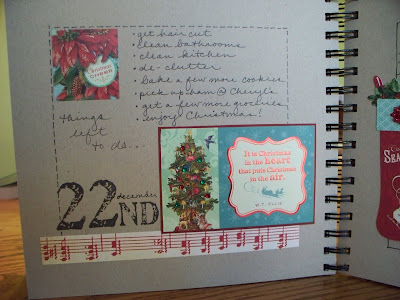 · get hair cut
· clean bathrooms
· clean kitchen
· de-clutter
· bake a few more cookies
· pick up ham @ Cheryl's
· get a few more groceries
· enjoy Christmas!
things
left
to do...
It is Christmas
in the heart
that puts Christmas
in the air.
W.T. ELLIS
december
22ND